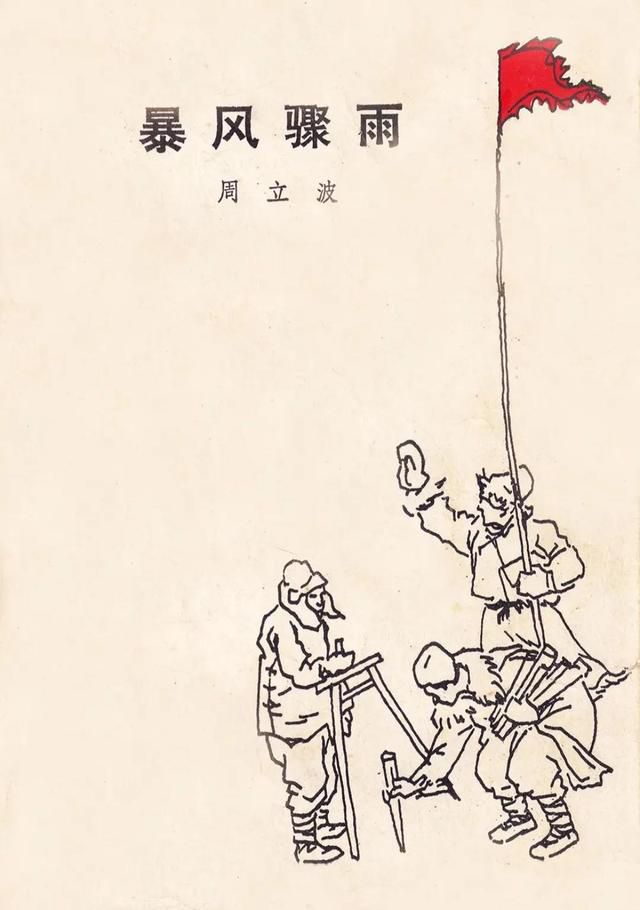 暴风骤雨
周立波